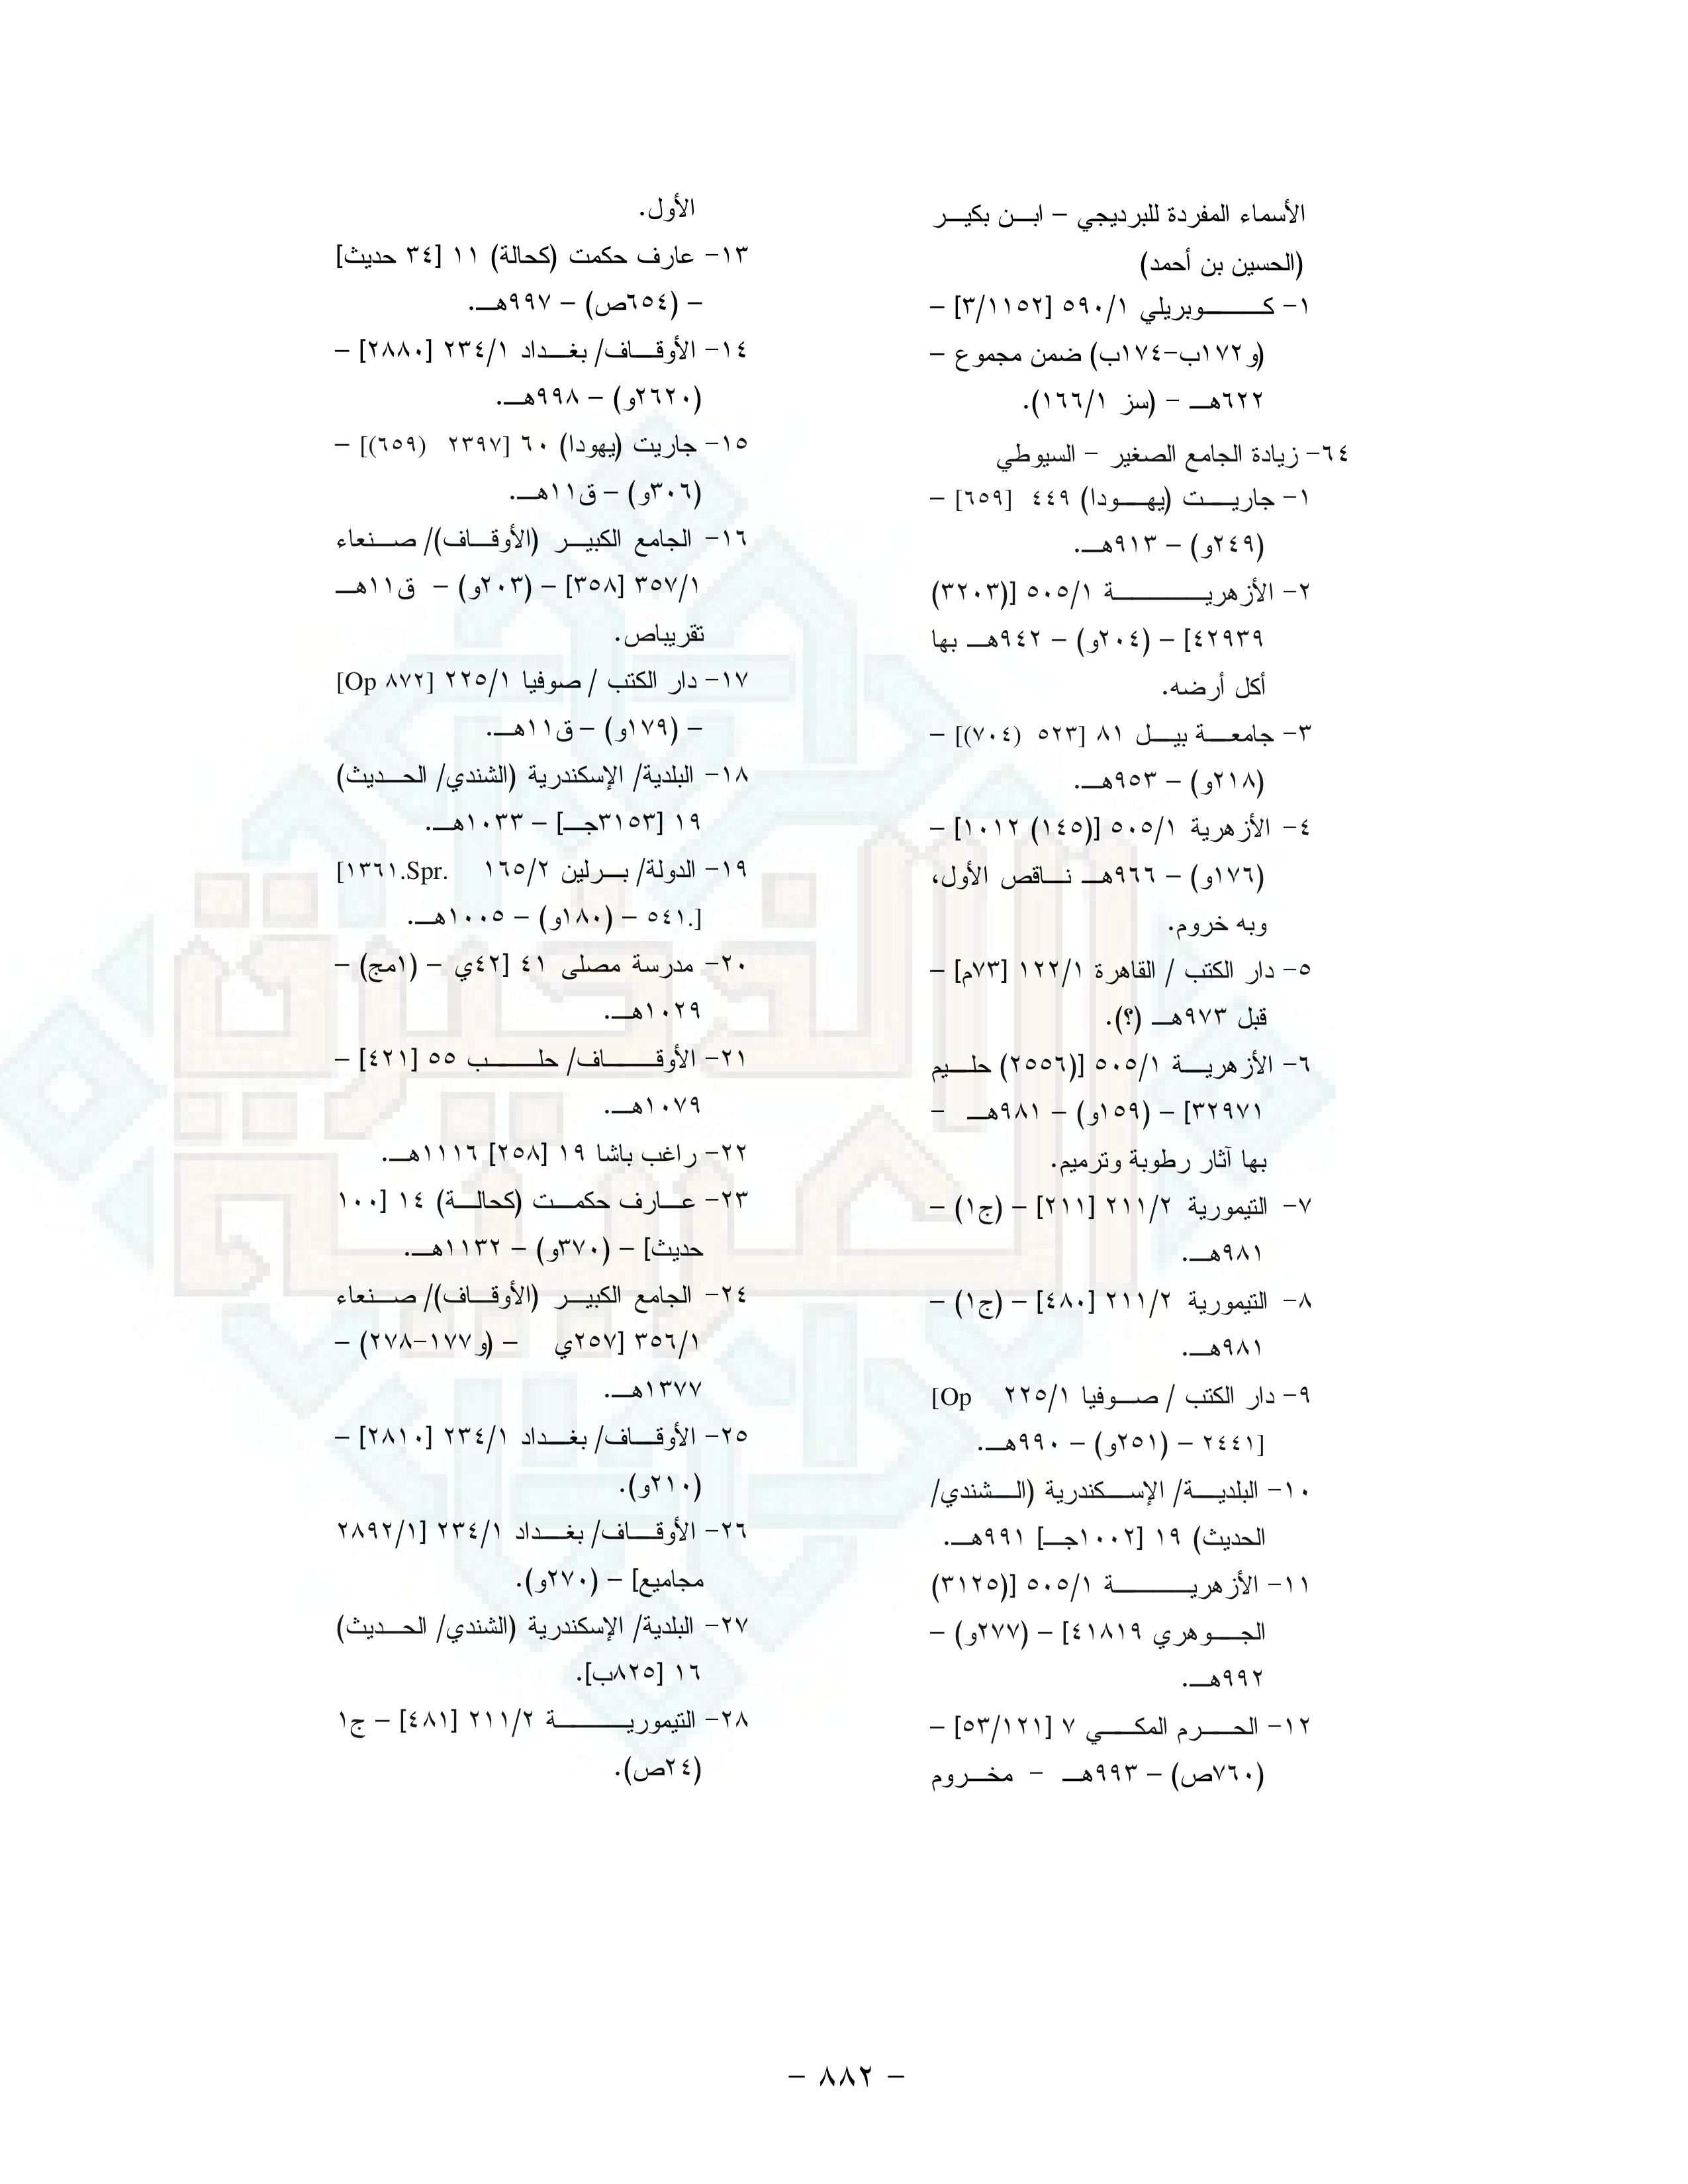 الأسماء المفردة للبرديجي – ابن بكير
(الحسين بن أحمد)
١- كوبريلي ٥٩٠/١ [٣/١١٥٢] –
(و١٧٢ب-١٧٤ب) ضمن مجموع –
٦٢٢هـ – (سز ١٦٦/١).
٦٤- زيادة الجامع الصغير – السيوطي
١- جاريت (يهودا) ٤٤٩ [٦٥٩] –
(٢٤٩و) – ٩١٣هـ.
٢- الأزهرية ٥٠٥/١ [(٣٢٠٣)
٤٢٩٣٩] – (٢٠٤و) – ٩٤٢هـ بها
أكل أرضه.
٣- جامعة بيل ٨١ [٥٢٣ (٧٠٤)] –
(٢١٨و) – ٩٥٣هـ.
٤- الأزهرية ٥٠٥/١ [(١٤٥) ١٠١٢] –
(١٧٦و) – ٩٦٦هـ ناقص الأول،
وبه خروم.
٥- دار الكتب / القاهرة ١٢٢/١ [٧٣م] –
قبل ٩٧٣هـ (؟).
٦- الأزهرية ٥٠٥/١ [(٢٥٥٦) حليم
٣٢٩٧١] – (١٥٩و) – ٩٨١هـ –
بها آثار رطوبة وترميم.
٧- التيمورية ٢١١/٢ [٢١١] – (ج١) –
٩٨١هـ.
٨- التيمورية ٢١١/٢ [٤٨٠] – (ج١) –
٩٨١هـ.
٩- دار الكتب / صوفيا ٢٢٥/١ [Op
٢٤٤١] – (٢٥١و) – ٩٩٠هـ.
١٠- البلدية/ الإسكندرية (الشندي/
الحديث) ١٩ [١٠٠٢جـ] ٩٩١هـ.
١١- الأزهرية ٥٠٥/١ [(٣١٢٥)
الجوهري ٤١٨١٩] – (٢٧٧و) –
٩٩٢هـ.
١٢- الحرم المكي ٧ [٥٣/١٢١] –
(٧٦٠ص) – ٩٩٣هـ – مخروم
الأول.
١٣- عارف حكمت (كحالة) ١١ [٣٤ حديث]
– (٦٥٤ص) – ٩٩٧هـ.
١٤- الأوقاف/ بغداد ٢٣٤/١ [٢٨٨٠] –
(٢٦٢٠و) – ٩٩٨هـ.
١٥- جاريت (يهودا) ٦٠ [٢٣٩٧ (٦٥٩)] –
(٣٠٦و) – ق١١هـ.
١٦- الجامع الكبير (الأوقاف)/ صنعاء
٣٥٧/١ [٣٥٨] – (٢٠٣و) – ق١١هـ
تقريباص.
١٧- دار الكتب / صوفيا ٢٢٥/١ [Op ٨٧٢]
– (١٧٩و) – ق١١هـ.
١٨- البلدية/ الإسكندرية (الشندي/ الحديث)
١٩ [٣١٥٣جـ] – ١٠٣٣هـ.
١٩- الدولة/ برلين ١٦٥/٢ [١٣٦١.Spr.
٥٤١.] – (١٨٠و) – ١٠٠٥هـ.
٢٠- مدرسة مصلى ٤١ [٤٢ي – (١مج) –
١٠٢٩هـ.
٢١- الأوقاف/ حلب ٥٥ [٤٢١] –
١٠٧٩هـ.
٢٢- راغب باشا ١٩ [٢٥٨] ١١١٦هـ.
٢٣- عارف حكمت (كحالة) ١٤ [١٠٠
حديث] – (٣٧٠و) – ١١٣٢هـ.
٢٤- الجامع الكبير (الأوقاف)/ صنعاء
٣٥٦/١ [٢٥٧ي – (و١٧٧-٢٧٨) –
١٣٧٧هـ.
٢٥- الأوقاف/ بغداد ٢٣٤/١ [٢٨١٠] –
(٢١٠و).
٢٦- الأوقاف/ بغداد ٢٣٤/١ [٢٨٩٢/١
مجاميع] – (٢٧٠و).
٢٧- البلدية/ الإسكندرية (الشندي/ الحديث)
١٦ [٨٢٥ب].
٢٨- التيمورية ٢١١/٢ [٤٨١] – ج١
(٢٤ص).
– ٨٨٢ –